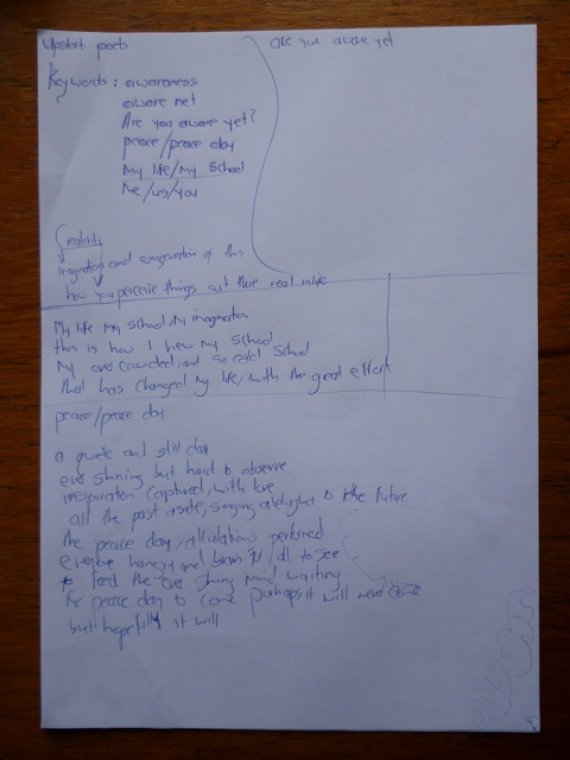 Upstart poets
are you aware yet
Keywords: awareness
aware net
Are you aware yet?
peace/peace day
My life/My School
Me/us/you
reality
imagination and exageration of this
how you perceive things out there real in life
My life My School, My imagination
this is how I view my School
My over crowded, and so called School
that has changed My life, with the great effort
peace/peace day
a quite and still day
ever Shining but hard to observe
inspiration captured, with love
all the past aside, singing to the future
the peace day, all performed
everyone and brain for all to see
feed the ever Shing mind waiting
for peace day to come perhaps it will never come
but hopefully it will